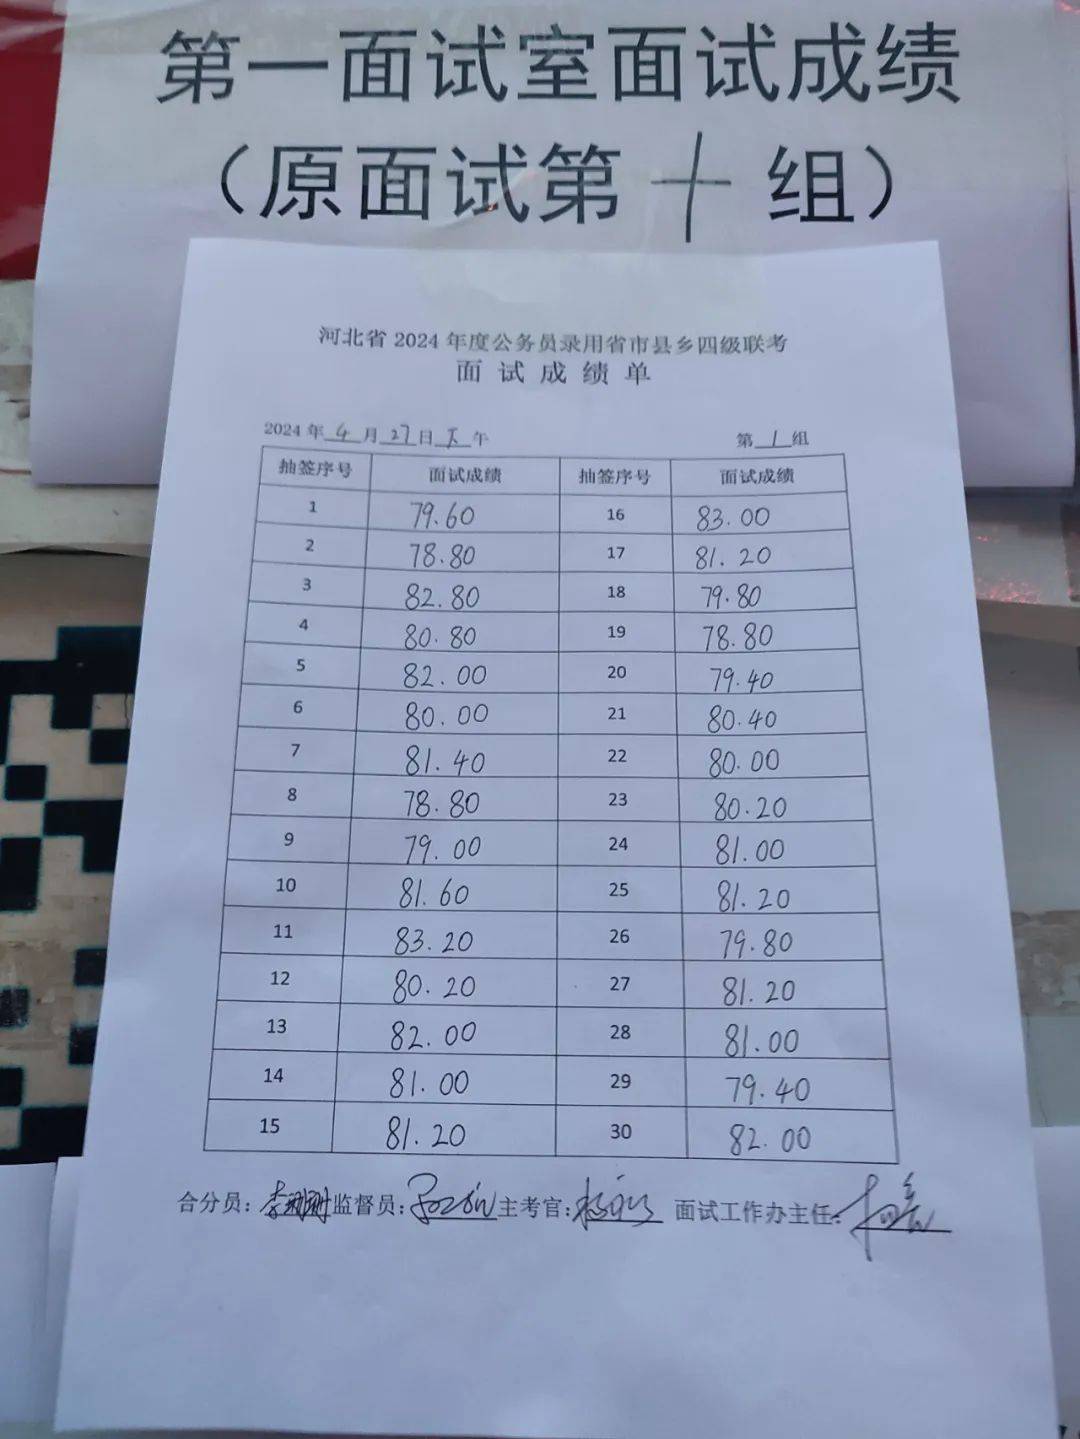 第一面试室面试成绩
（原面试第十组）
河北省2024年度公务员录用省市县乡四级联考
面试成绩单
2024年4月27日下午 第1组
抽签序号 面试成绩 抽签序号 面试成绩
1 79.60 16 83.00
2 78.80 17 81.20
3 82.80 18 79.80
4 80.80 19 78.80
5 82.00 20 79.40
6 80.00 21 80.40
7 81.40 22 80.00
8 78.80 23 80.20
9 79.00 24 81.00
10 81.60 25 81.20
11 83.20 26 79.80
12 80.20 27 81.20
13 82.00 28 81.00
14 81.00 29 79.40
15 81.20 30 82.00
合分员: 监督员: 主考官: 面试工作办主任: